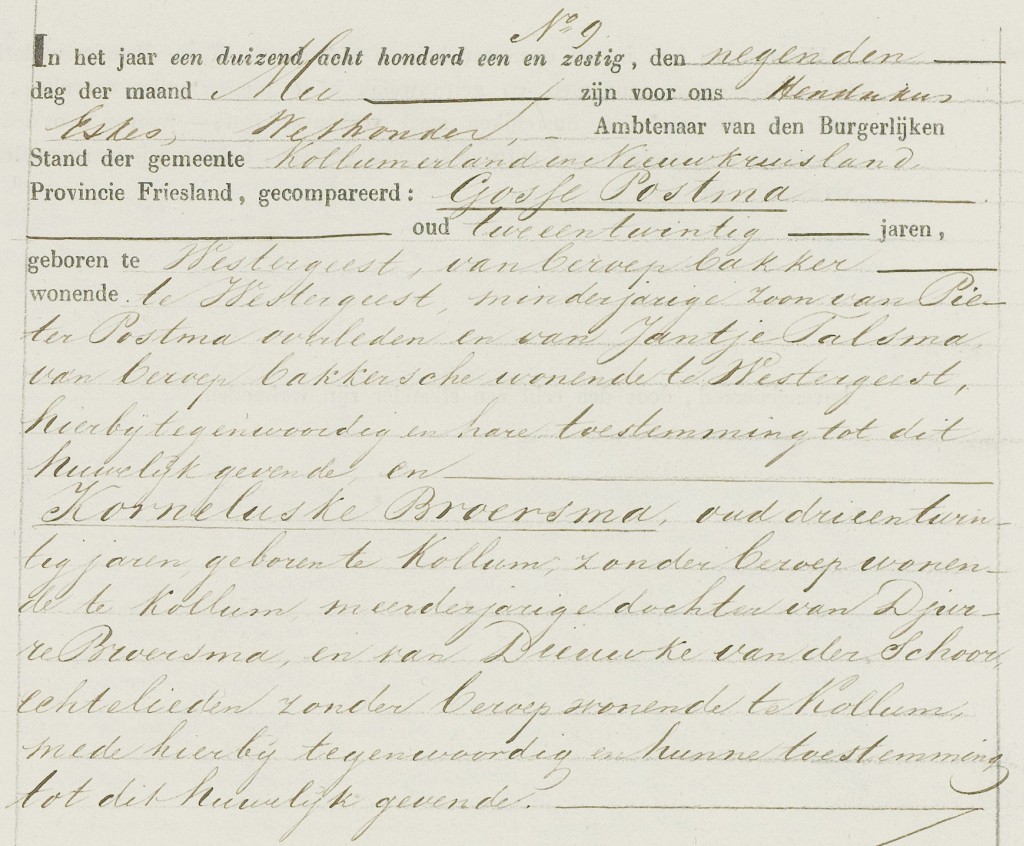 No 9.
In het jaar een duizend acht honderd een en zestig, den negenden
dag der maand Mei zijn voor ons Hendrikus
Eskes, Wethouder, Ambtenaar van den Burgerlijken
Stand der gemeente Kollumerland en Nieuwkruisland
Provincie Friesland, gecompareerd: Gosse Postma
oud tweeentwintig jaren,
geboren te Westergeest, van beroep bakker
wonende te Westergeest, minderjarige zoon van Pie-
ter Postma overleden en van Jantje Talsma,
van beroep bakkersche wonende te Westergeest,
hierbij tegenwoordig en hare toestemming tot dit
huwelijk gevende, en
Korneluske Broersma, oud drieentwin-
tig jaren, geboren te Kollum, zonder beroep wonen-
de te Kollum, meerderjarige dochter van Djur-
re Broersma, en van Dieuwke van der Schoor,
echtelieden zonder beroep wonende te Kollum,
mede hierbij tegenwoordig en hunne toestemming
tot dit huwelijk gevende.